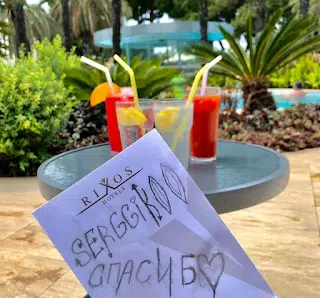 RIXOS
HOTELS
SERGEiKOO
СПАСИБ♡